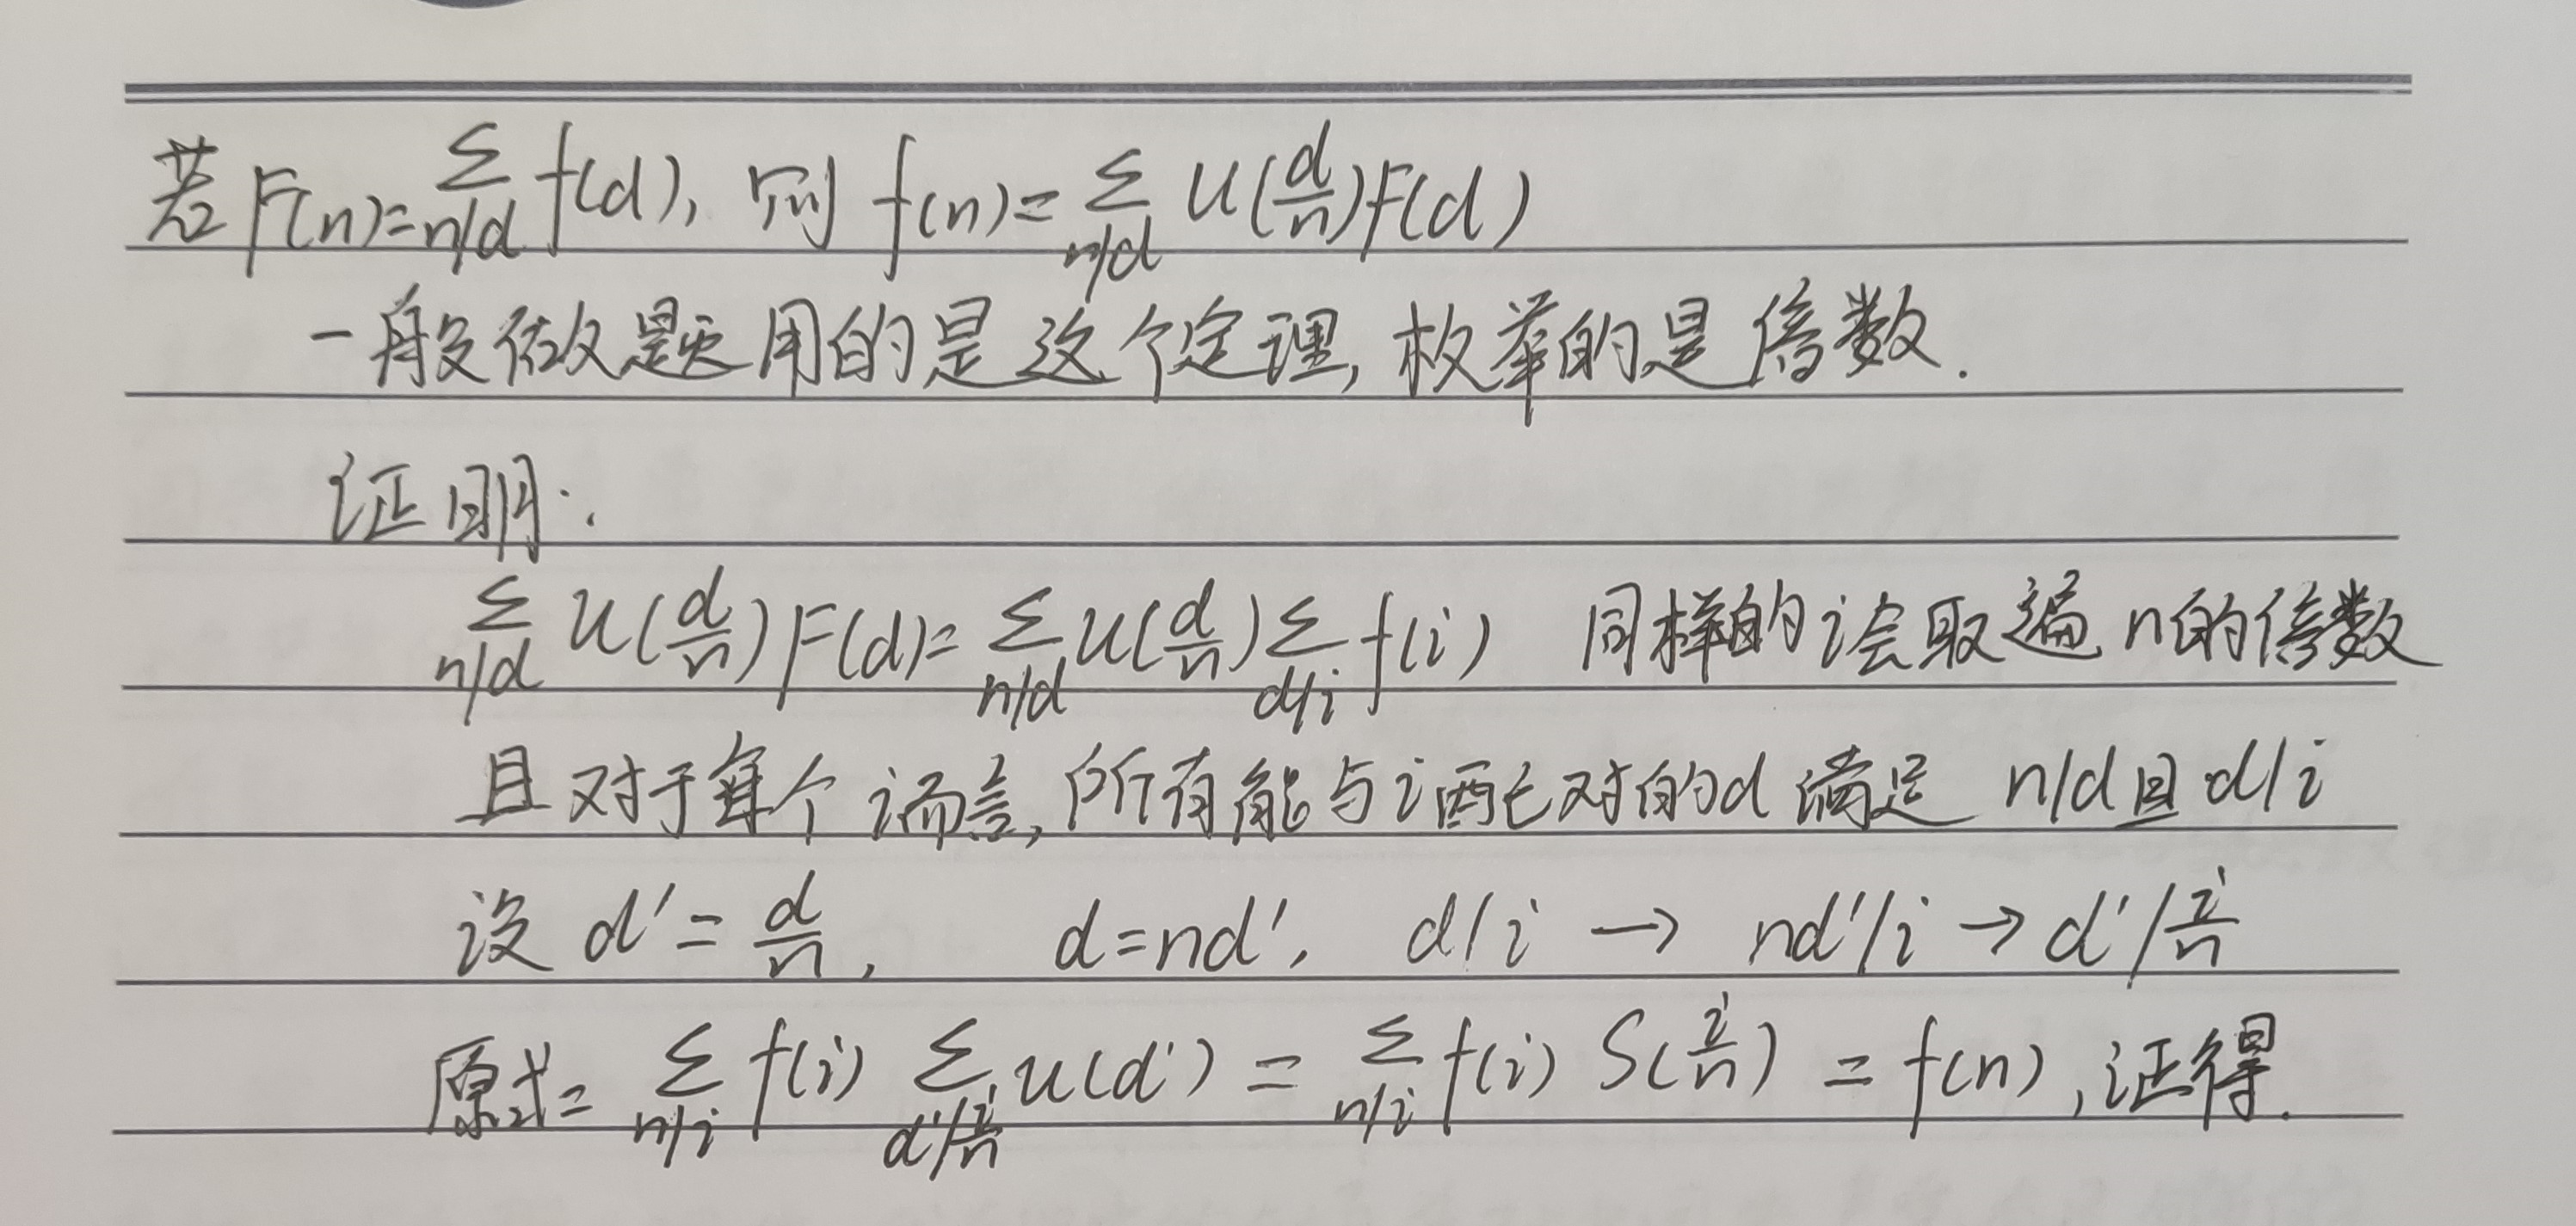 若 F(n)=∑_{n/d} f(d), 则 f(n)=∑_{n/d} u(d/n)F(d)
一般做题用的是这个定理, 枚举的是倍数.
证明:
∑_{n/d} u(d/n)F(d)=∑_{n/d} u(d/n)∑_{d/i} f(i) 同样的i会取遍n的倍数
且对于每个i而言, 所有能与i配对的d满足 n/d且d/i
设 d'=d/n, d=nd', d/i → nd'/i → d'/(i/n)
原式=∑_{n/i} f(i) ∑_{d'/(i/n)} u(d') = ∑_{n/i} f(i) S(i/n) = f(n), 证得.